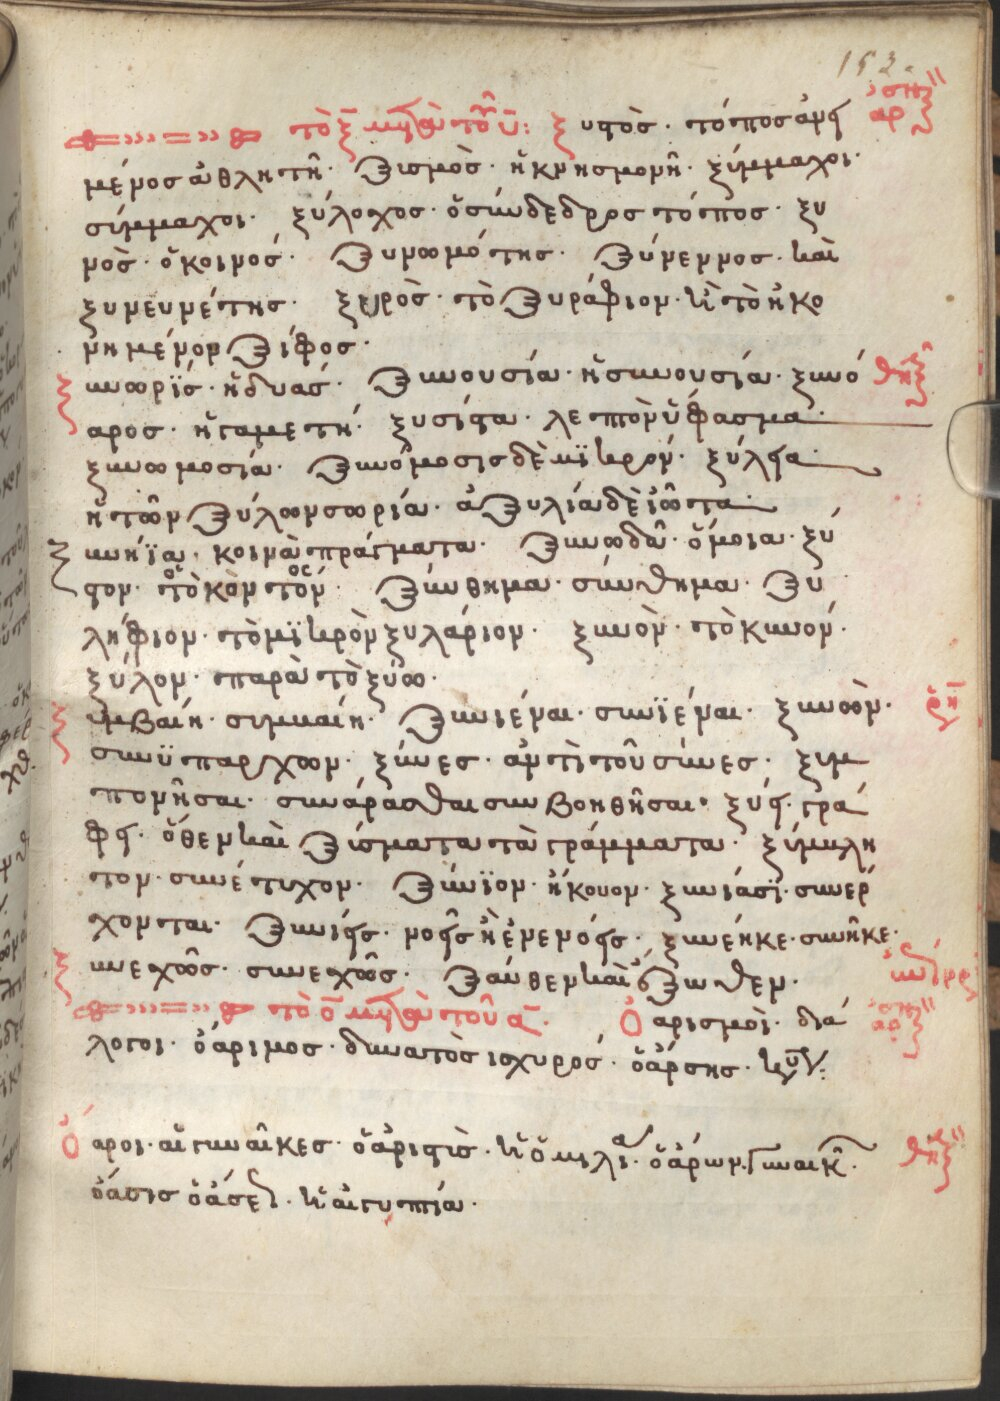 153.
τὸ ξ μετὰ τοῦ υ: ξυστὸς· τόπος ἀνει
ἀρσ
μένος ἀθλητῆ· ξισμὸς· ἢ κνησμονῆ· ξύμμαχοι·
σύμμαχοι· ξύλοχος· ὁ σύνδεδρος τόπος· ξυ
νὸς· ὁ κοινός· ξυνωμότης· ξύνευνος· καὶ
ξυνευνέτης· ξυρὸς· τὸ ξυράφιον· κ τὸ ἠκο
νημένον ξίφος·
ξυνωρϊς· ἡ δυάς· ξυνουσία· ἡ συνουσία· ξυνό
θηλ
αρος· ἡ γαμετή· ξυστίστα· λεπτὸν ὕφασμα·
ξυνωμοσία· ξυνόμοσις δὲ μϊκρόν· ξύλεία·
ἡ τῶν ξύλων σωρία· ἀξυλία δὲ ἰῶτα·
ξυνήϊα· κοινὰ πράγματα· ξυνωδᾶ· ὅμοια· ξύ
στον· τὸ κὸντον· ξύνθημα· σύνθημα· ξυ
λήφιον· τὸ μϊκρὸν ξυλάριον· ξυνὸν· τὸ κυνόν·
ξύλον· παρὰ τὸ ξύω·
ξυμβαίη· συμβαίη· ξυνιέναι· συνϊέναι· ξυνοὸν·
συνϋπαρχοον· ξύνες· ἀντὶ τοῦ σύνες· ξυμ
πονῆσαι· συνάρασθαι συνβοηθῆσαι· ξύει· γρά
φει· ὅθεν καὶ ξύσματα τὰ γράμματα· ξύμπλη
τον· συνέτυχον· ξύνϊον· ἤκουον· ξυνιάσϊ· συνέρ
χονται· ξυνιεὶς· νοεῖς ἢ ἐνενόεις· ξυνέηκε· συνῆκε·
ξυνεχῶς· συνεχῶς· ξάνθεν καὶ ξυνθεν·
τὸ ο μετὰ τοῦ α· Ὀαρισμοὶ· διά
ἀρσ
λογοι· ὀάριμος· δυνατὸς ἰσχυρός· ὀάρσης· κυ:
Ὄαροι· αἱ γυναῖκες· ὀαριστὺς· κ ὁμιλία· ὀάρων· γυναικῶν·
θηλ
ὄασις ὀάσεως· κ αἰγυπτία·